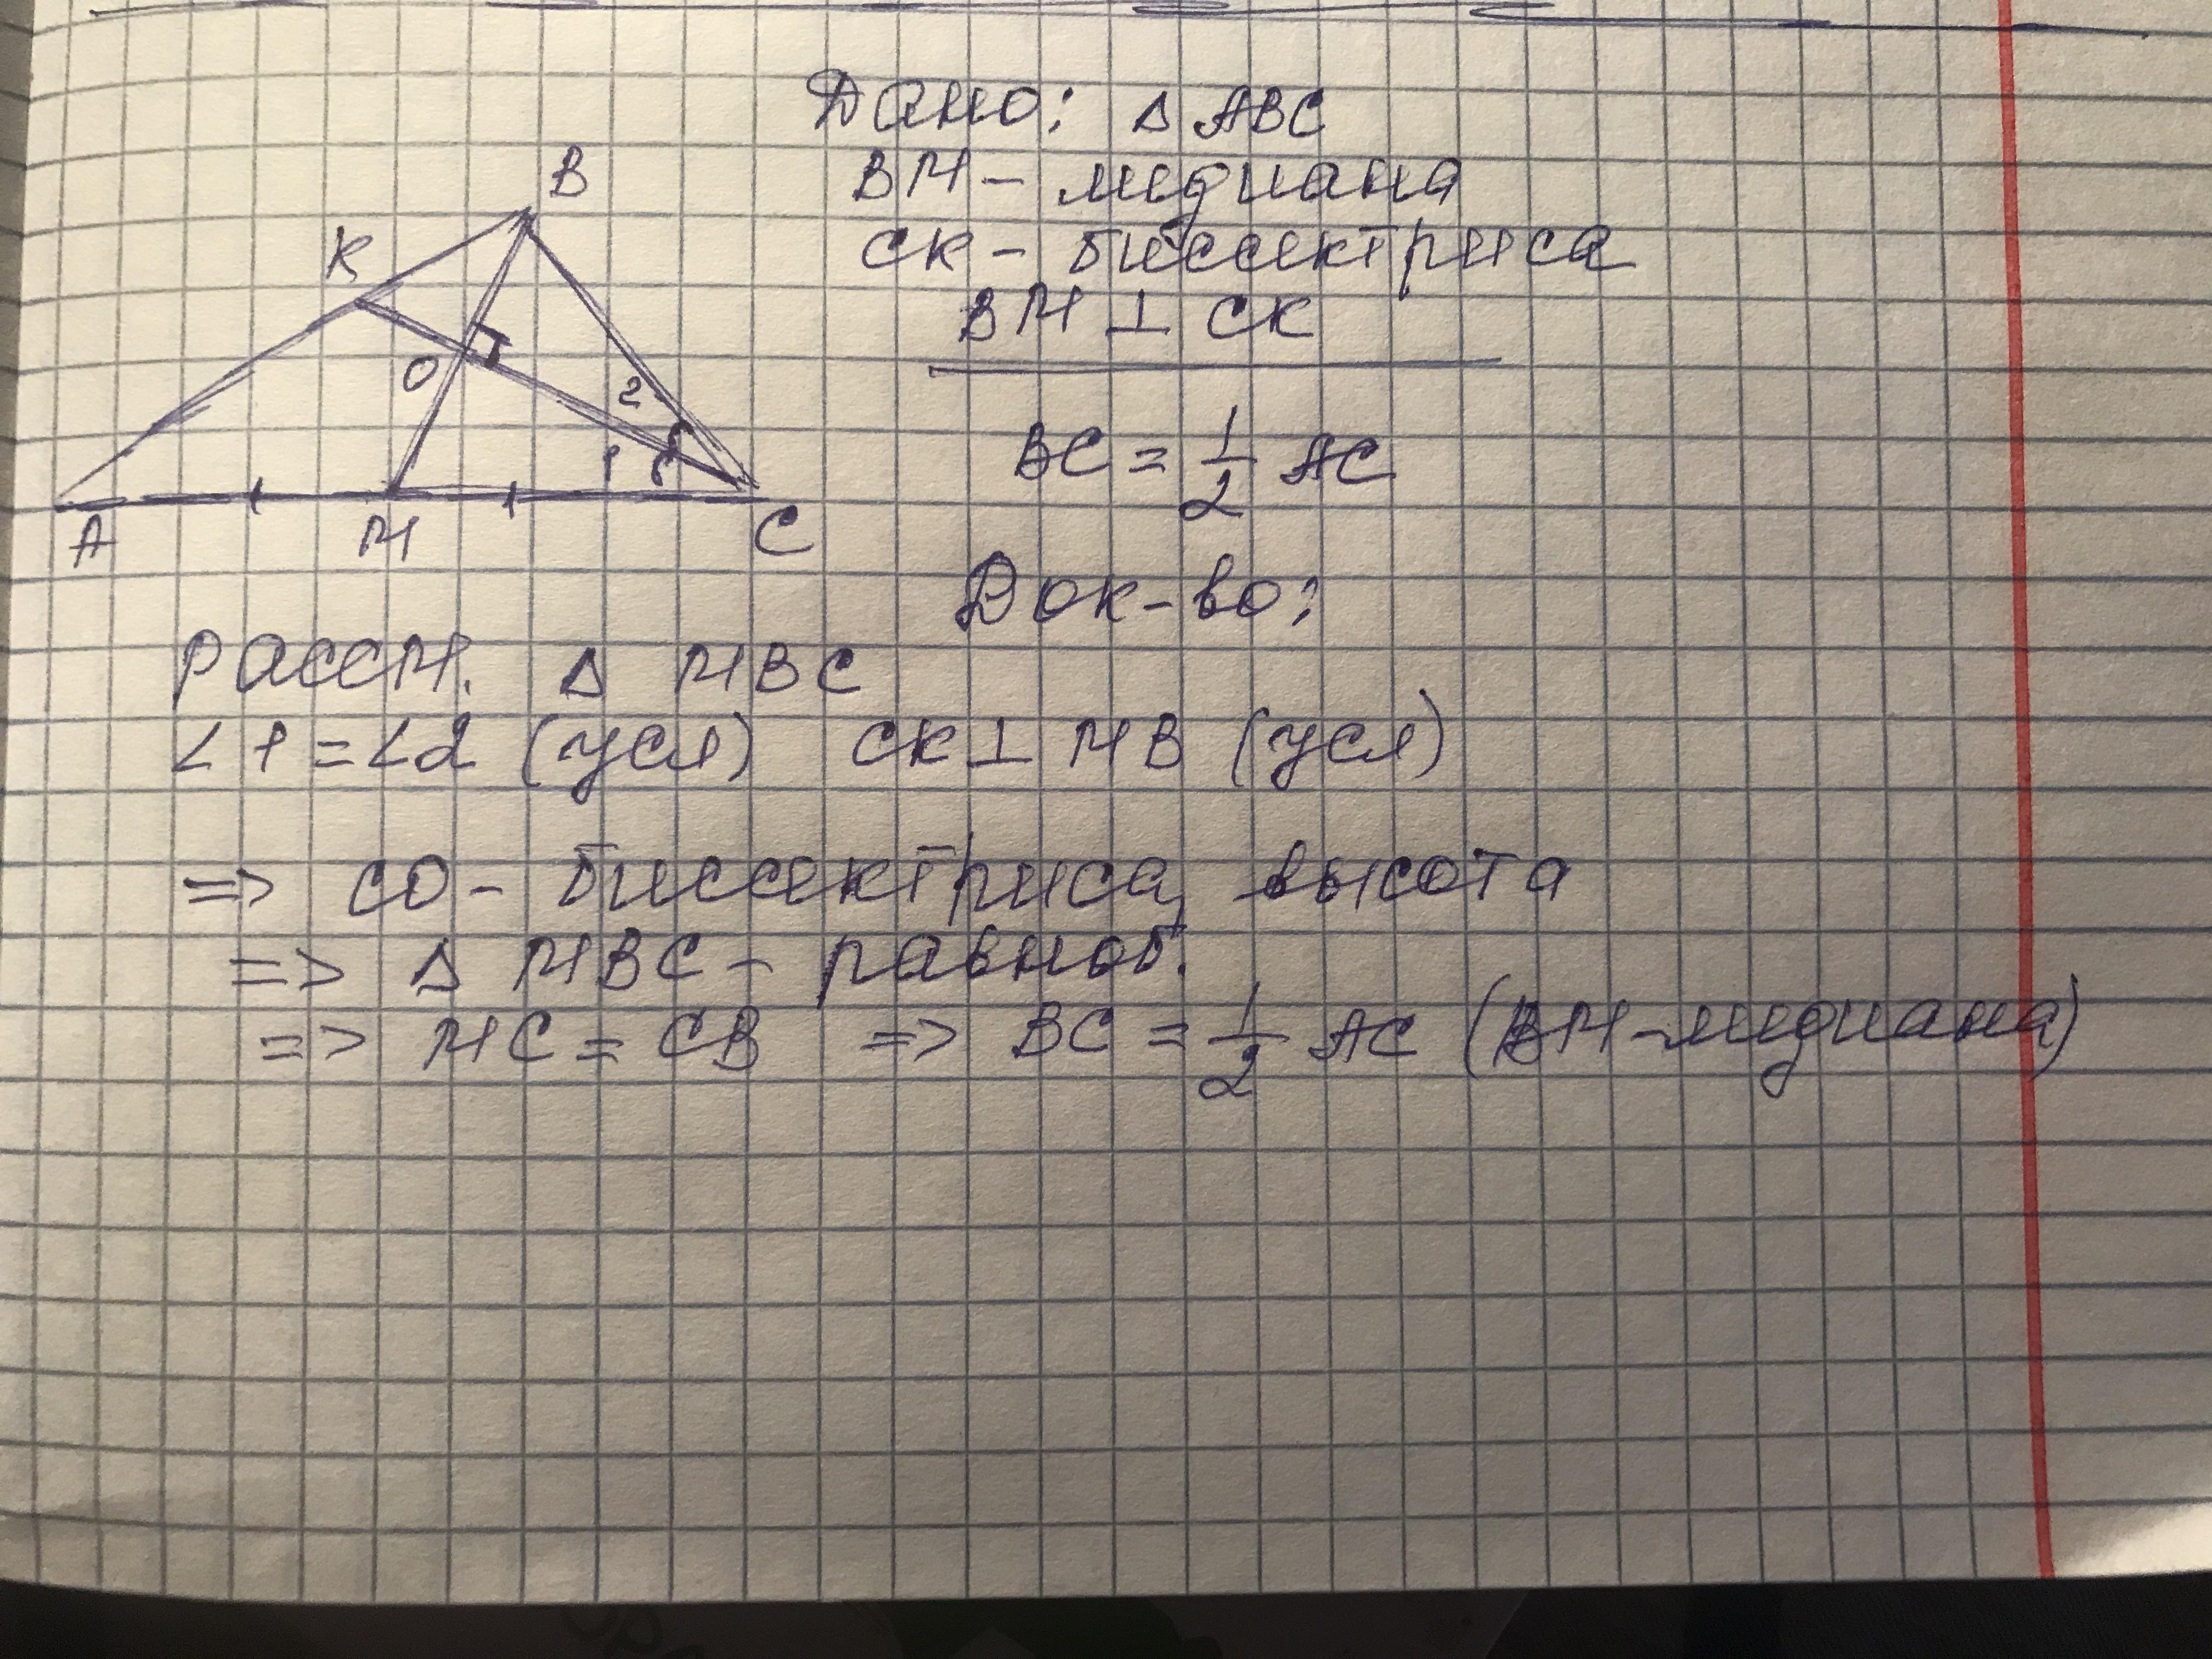 Дано: Δ ABC
BM - медиана
CK - биссектриса
BM ⊥ CK
B
K
O
2
1
A
M
C
BC = 1/2 AC
Док-во:
Рассм. Δ MBC
∠1 = ∠2 (усл) CK ⊥ MB (усл)
=> CO - биссектриса, высота
=> Δ MBC - равноб.
=> MC = CB => BC = 1/2 AC (BM - медиана)